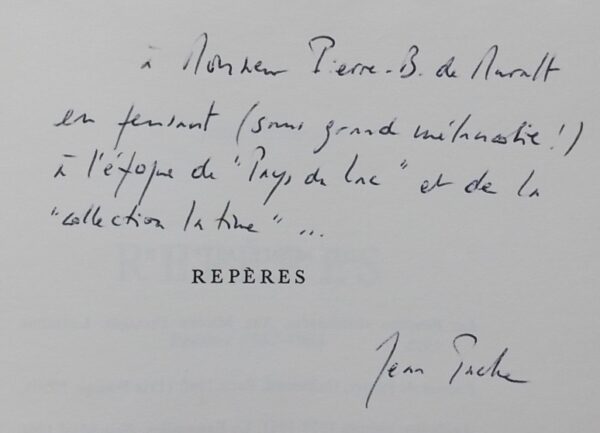 à Monsieur Pierre-B. de Muralt
en pensant (sans grand mélancolie!)
à l'époque du "Pays du Lac" et de la
"collection la tine" ...
REPÈRES
Jean Pache